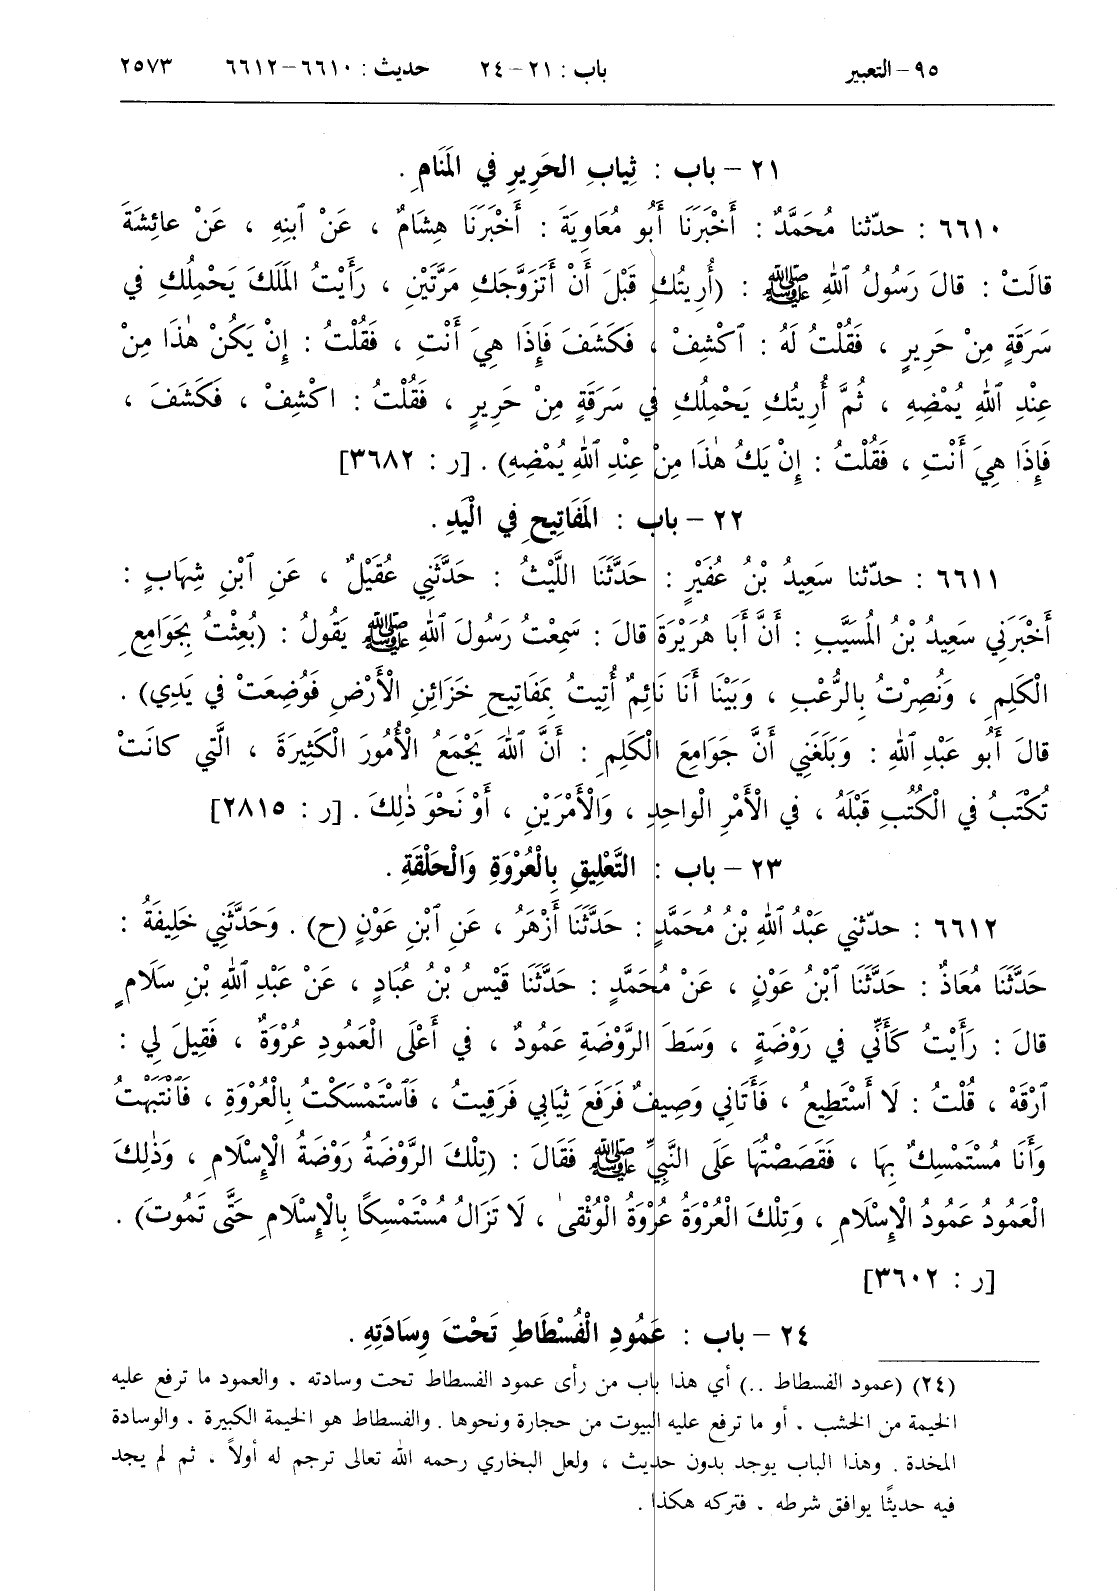 ٩٥ - التعبير باب : ٢١ - ٢٤ حديث : ٦٦١٠ - ٦٦١٢ ٢٥٧٣
٢١ - باب : ثِيابِ الحَرِيرِ في المَنَامِ .
٦٦١٠ : حدّثنا مُحَمَّدٌ : أَخْبَرَنَا أَبُو مُعَاوِيَةَ : أَخْبَرَنَا هِشَامٌ ، عَنْ ٱبْنِهِ ، عَنْ عائِشَةَ
قالَتْ : قالَ رَسُولُ ٱللهِ ﷺ : (أُرِيتُكِ قَبْلَ أَنْ أَتَزَوَّجَكِ مَرَّتَيْنِ ، رَأَيْتُ المَلَكَ يَحْمِلُكِ في
سَرَقَةٍ مِنْ حَرِيرٍ ، فَقُلْتُ لَهُ : ٱكْشِفْ ، فَكَشَفَ فَإِذَا هِيَ أَنْتِ ، فَقُلْتُ : إِنْ يَكُنْ هٰذَا مِنْ
عِنْدِ ٱللهِ يُمْضِهِ ، ثُمَّ أُرِيتُكِ يَحْمِلُكِ في سَرَقَةٍ مِنْ حَرِيرٍ ، فَقُلْتُ : اكْشِفْ ، فَكَشَفَ ،
فَإِذَا هِيَ أَنْتِ ، فَقُلْتُ : إِنْ يَكُ هٰذَا مِنْ عِنْدِ ٱللهِ يُمْضِهِ) . [ر : ٣٦٨٢]
٢٢ - باب : المَفَاتِيحِ في الْيَدِ .
٦٦١١ : حدّثنا سَعِيدُ بْنُ عُفَيْرٍ : حَدَّثَنَا اللَّيْثُ : حَدَّثَنِي عُقَيْلٌ ، عَنِ ٱبْنِ شِهَابٍ :
أَخْبَرَنِي سَعِيدُ بْنُ المُسَيَّبِ : أَنَّ أَبَا هُرَيْرَةَ قالَ : سَمِعْتُ رَسُولَ ٱللهِ ﷺ يَقُولُ : (بُعِثْتُ بِجَوَامِعِ
الْكَلِمِ ، وَنُصِرْتُ بِالرُّعْبِ ، وَبَيْنَا أَنَا نَائِمٌ أُتِيتُ بِمَفَاتِيحِ خَزَائِنِ الْأَرْضِ فَوُضِعَتْ في يَدِي) .
قالَ أَبُو عَبْدِ ٱللهِ : وَبَلَغَنِي أَنَّ جَوَامِعَ الْكَلِمِ : أَنَّ ٱللهَ يَجْمَعُ الْأُمُورَ الْكَثِيرَةَ ، الَّتِي كانَتْ
تُكْتَبُ في الْكُتُبِ قَبْلَهُ ، في الْأَمْرِ الْوَاحِدِ ، وَالْأَمْرَيْنِ ، أَوْ نَحْوَ ذٰلِكَ . [ر : ٢٨١٥]
٢٣ - باب : التَّعْلِيقِ بِالْعُرْوَةِ وَالْحَلْقَةِ .
٦٦١٢ : حدّثني عَبْدُ ٱللهِ بْنُ مُحَمَّدٍ : حَدَّثَنَا أَزْهَرُ ، عَنِ ٱبْنِ عَوْنٍ (ح) . وَحَدَّثَنِي خَلِيفَةُ :
حَدَّثَنَا مُعَاذٌ : حَدَّثَنَا ٱبْنُ عَوْنٍ ، عَنْ مُحَمَّدٍ : حَدَّثَنَا قَيْسُ بْنُ عُبَادٍ ، عَنْ عَبْدِ ٱللهِ بْنِ سَلَامٍ
قالَ : رَأَيْتُ كَأَنِّي في رَوْضَةٍ ، وَسَطَ الرَّوْضَةِ عَمُودٌ ، في أَعْلَى الْعَمُودِ عُرْوَةٌ ، فَقِيلَ لِي :
ٱرْقَهْ ، قُلْتُ : لَا أَسْتَطِيعُ ، فَأَتَانِي وَصِيفٌ فَرَفَعَ ثِيَابِي فَرَقِيتُ ، فَٱسْتَمْسَكْتُ بِالْعُرْوَةِ ، فَٱنْتَبَهْتُ
وَأَنَا مُسْتَمْسِكٌ بِهَا ، فَقَصَصْتُهَا عَلَى النَّبِيِّ ﷺ فَقَالَ : (تِلْكَ الرَّوْضَةُ رَوْضَةُ الْإِسْلَامِ ، وَذٰلِكَ
الْعَمُودُ عَمُودُ الْإِسْلَامِ ، وَتِلْكَ الْعُرْوَةُ عُرْوَةُ الْوُثْقىٰ ، لَا تَزَالُ مُسْتَمْسِكًا بِالْإِسْلَامِ حَتَّى تَمُوتَ) .
[ر : ٣٦٠٢]
٢٤ - باب : عَمُودِ الْفُسْطَاطِ تَحْتَ وِسَادَتِهِ .
(٢٤) (عمود الفسطاط ..) أي هذا باب من رأى عمود الفسطاط تحت وسادته . والعمود ما ترفع عليه
الخيمة من الخشب . أو ما ترفع عليه البيوت من حجارة ونحوها . والفسطاط هو الخيمة الكبيرة . والوسادة
المخدة . وهذا الباب يوجد بدون حديث ، ولعل البخاري رحمه الله تعالى ترجم له أولاً ، ثم لم يجد
فيه حديثًا يوافق شرطه . فتركه هكذا .